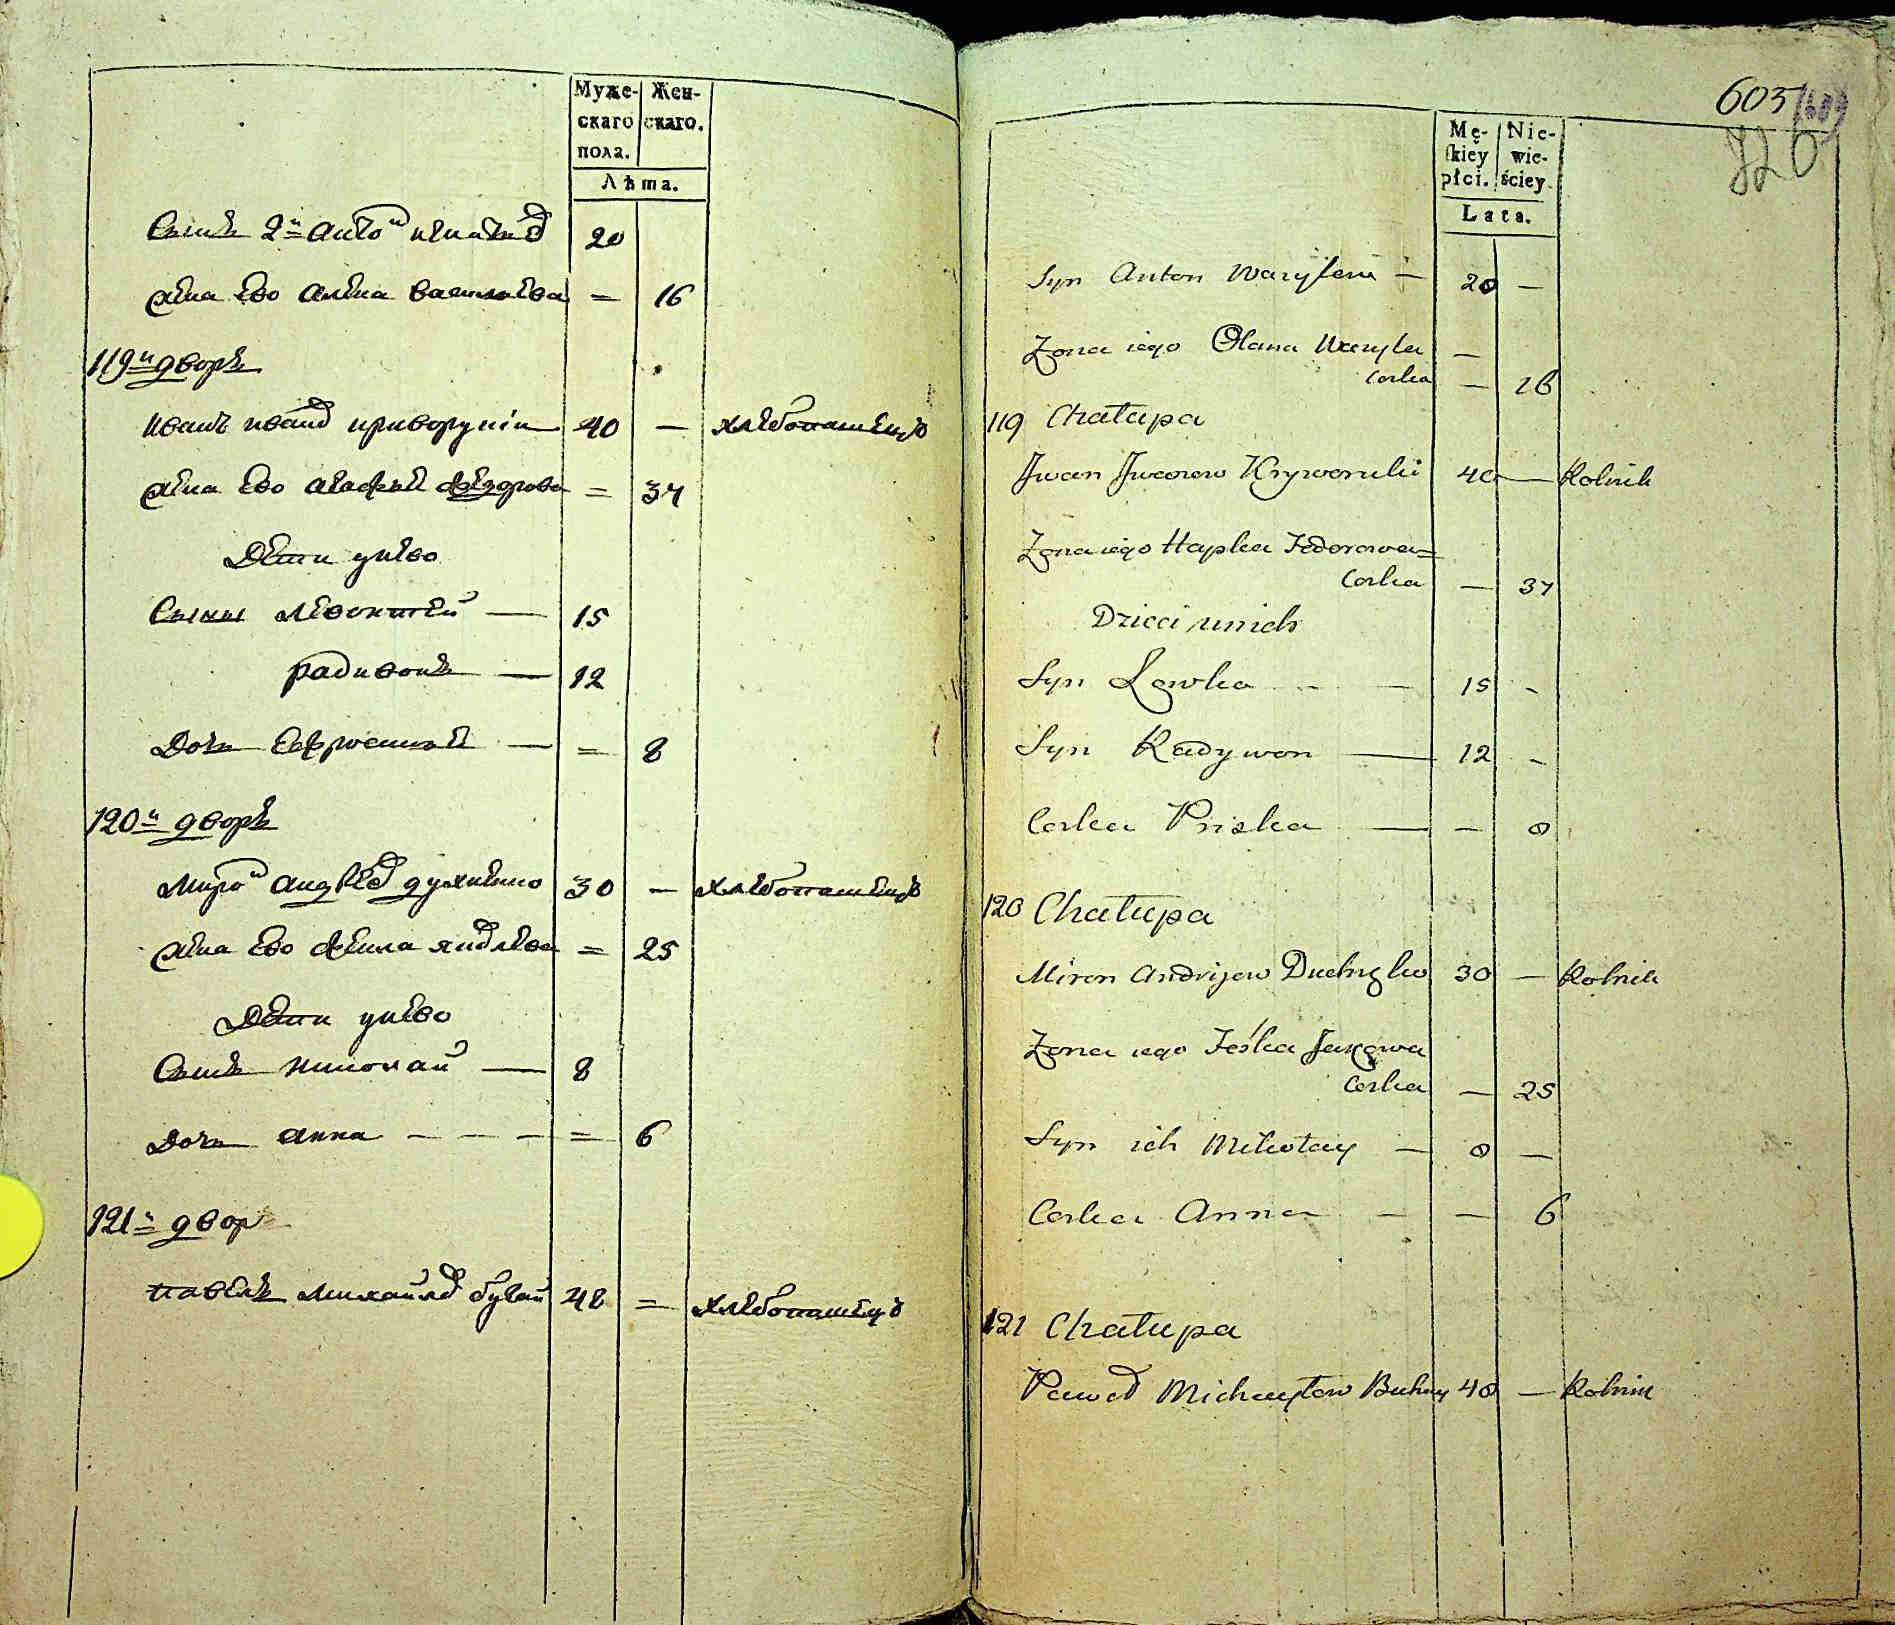 Муже- Жен-
скаго скаго.
пола.
Лѣта.
Сынъ 2й Антонъ 20
жена Ево Алена Васильева = 16
119й дворъ
Иванъ Ивановъ Криворучкинъ 40 — хлебопашецъ
жена Ево Агафья Федорова = 37
Дети у него
Сыны Левонтей — 15
Радивонъ — 12
Дочь Ефросинья — = 8
120й дворъ
Миронъ Андреевъ Духненко 30 — хлебопашецъ
жена Ево Фекла Яковлева = 25
Дети у него
Сынъ Николай — 8
Дочь Анна - - - = 6
121й двор
Павелъ Михайловъ Бугай 48 = хлебопашецъ
603
720
Mę- Nie-
skiey wie-
płci. ściey.
Lata.
Syn Anton Wasylew — 20 —
Żona iego Olana Wasylu —
Corka — 16
119 Chałupa
Jwan Jwanow Kryworuki 40 — Rolnik
Żona iego Hapka Fedorowa=
Corka — 37
Dzieci unich
Syn Lewko - — 15 -
Syn Radywon — 12 -
Corka Priska — — 8
120 Chałupa
Miron Andrijew Duchnyko 30 — Rolnik
Żona iego Feśka Jakowa
Corka — 25
Syn ich Mikołay — 8 —
Corka Anna — — 6
121 Chałupa
Paweł Michayłow Buhay 48 — Rolnik